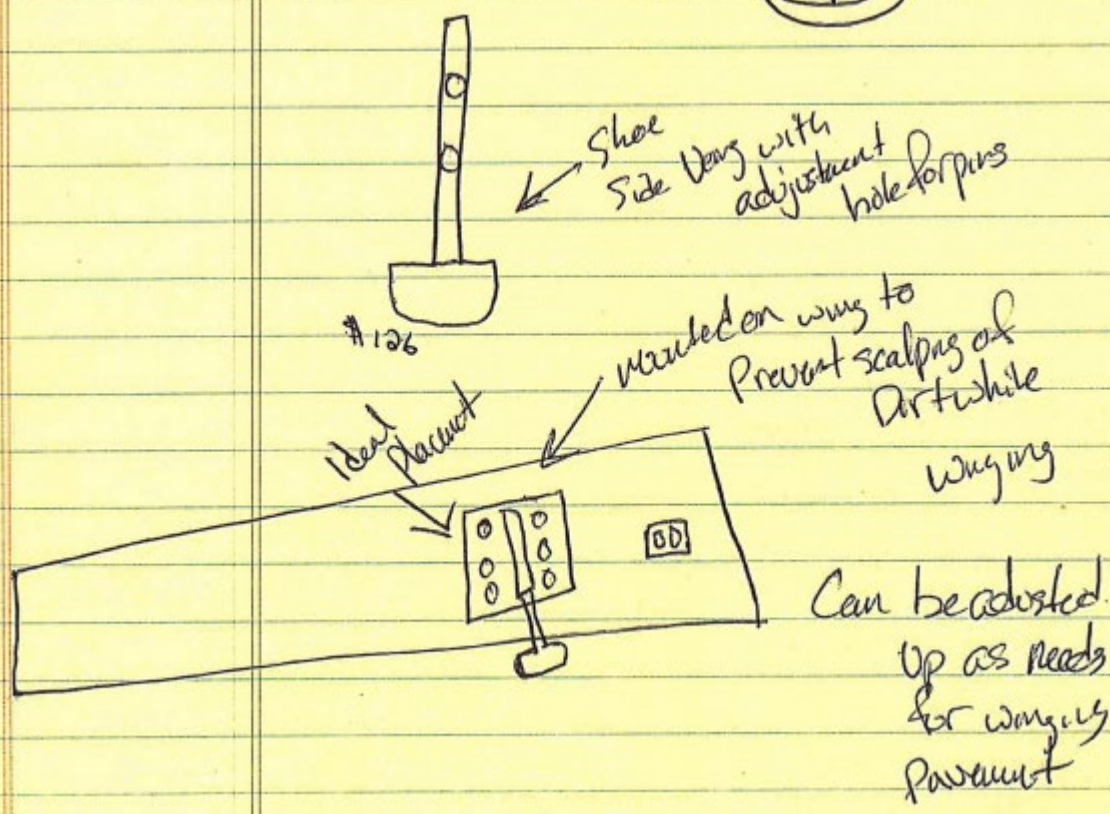 Shoe
Side View with
adjustment
hole for pins
$126
mounted on wing to
Prevent scalping of
Dirt while
winging
Ideal
placment
Can be adusted
up as needs
for winging
pavement